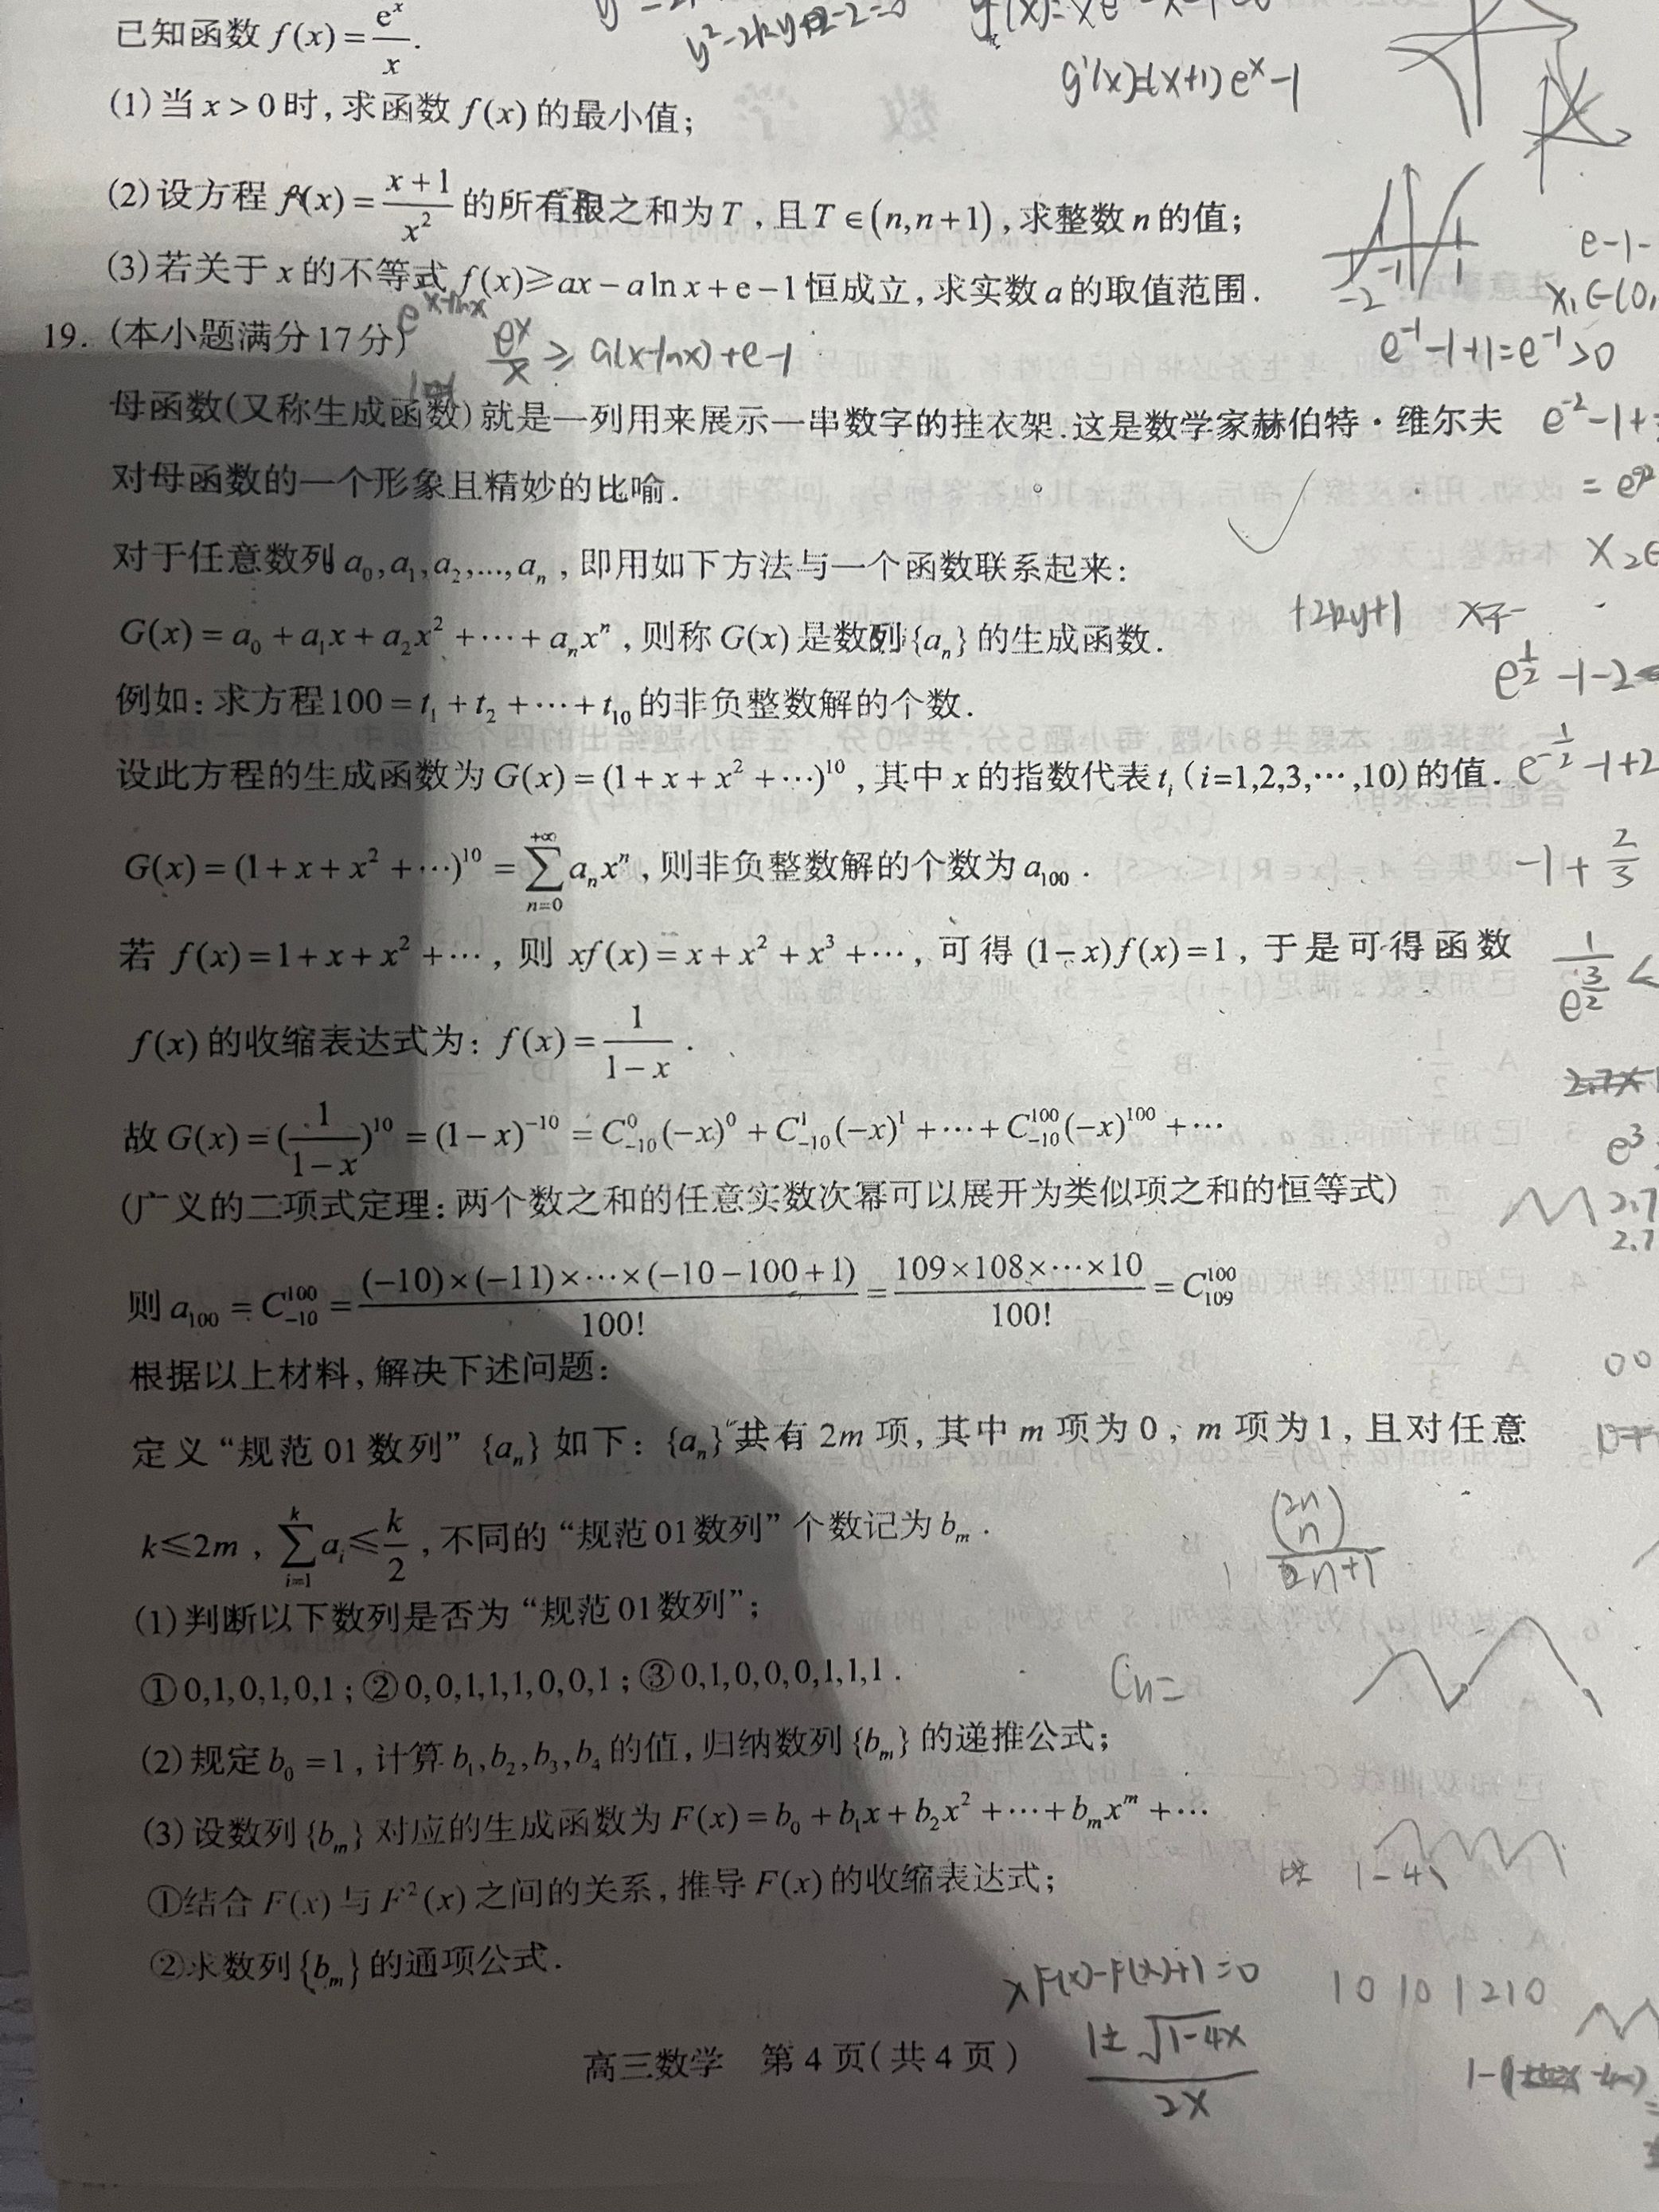 已知函数 f(x)=e^x/x.
(1)当 x>0时,求函数 f(x)的最小值;
(2)设方程 f(x)=(x+1)/x² 的所有根之和为T,且T∈(n,n+1),求整数n的值;
(3)若关于 x 的不等式 f(x)≥ax-alnx+e-1恒成立,求实数a的取值范围.
19. (本小题满分17分)
母函数(又称生成函数)就是一列用来展示一串数字的挂衣架.这是数学家赫伯特·维尔夫
对母函数的一个形象且精妙的比喻.
对于任意数列 a₀,a₁,a₂,...,aₙ,即用如下方法与一个函数联系起来:
G(x)=a₀+a₁x+a₂x²+⋯+aₙxⁿ,则称G(x)是数列{aₙ}的生成函数.
例如:求方程100=t₁+t₂+⋯+t₁₀的非负整数解的个数.
设此方程的生成函数为G(x)=(1+x+x²+⋯)¹⁰,其中x的指数代表tᵢ(i=1,2,3,⋯,10)的值.
G(x)=(1+x+x²+⋯)¹⁰=∑_{n=0}^{+∞}aₙxⁿ,则非负整数解的个数为a₁₀₀.
若 f(x)=1+x+x²+⋯,则 xf(x)=x+x²+x³+⋯,可得(1-x)f(x)=1,于是可得函数
f(x)的收缩表达式为:f(x)=1/(1-x).
故G(x)=(1/(1-x))¹⁰=(1-x)⁻¹⁰=C_{-10}^{0}(-x)⁰+C_{-10}^{1}(-x)¹+⋯+C_{-10}^{100}(-x)¹⁰⁰+⋯
(广义的二项式定理:两个数之和的任意实数次幂可以展开为类似项之和的恒等式)
则a₁₀₀=C_{-10}^{100}=((-10)×(-11)×⋯×(-10-100+1))/100!=(109×108×⋯×10)/100!=C_{109}^{100}
根据以上材料,解决下述问题:
定义“规范01数列”{aₙ}如下:{aₙ}共有2m项,其中m项为0,m项为1,且对任意
k≤2m,∑_{i=1}^{k}aᵢ≤k/2,不同的“规范01数列”个数记为bₘ.
(1)判断以下数列是否为“规范01数列”;
①0,1,0,1,0,1;②0,0,1,1,1,0,0,1;③0,1,0,0,0,1,1,1.
(2)规定b₀=1,计算b₁,b₂,b₃,b₄的值,归纳数列{bₘ}的递推公式;
(3)设数列{bₘ}对应的生成函数为F(x)=b₀+b₁x+b₂x²+⋯+bₘxᵐ+⋯
①结合F(x)与F²(x)之间的关系,推导F(x)的收缩表达式;
②求数列{bₘ}的通项公式.
高三数学 第4页(共4页)
g'(x)=(x+1)e^x-1
e^x/x ≥ a(x-lnx)+e-1
e⁻¹-1+1=e⁻¹>0
+2ky+1
-1+2/3
Cₙ=
1-4
xF(x)-F(x)+1=0
(1±√(1-4x))/2x
1 0 1 0 1 2 1 0